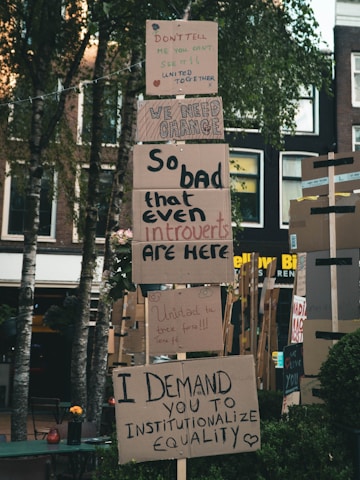 DON'T TELL
ME YOU CAN'T
SEE IT!!
UNITED
TOGETHER
WE NEED
CHANGE
So BAD
that
even
introverts
ARE HERE
United to
I DEMAND
YOU TO
INSTITUTIONALIZE
EQUALITY
ellow Bi